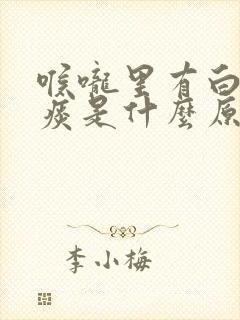 喉嚨里有白
痰是什麼原
李小梅